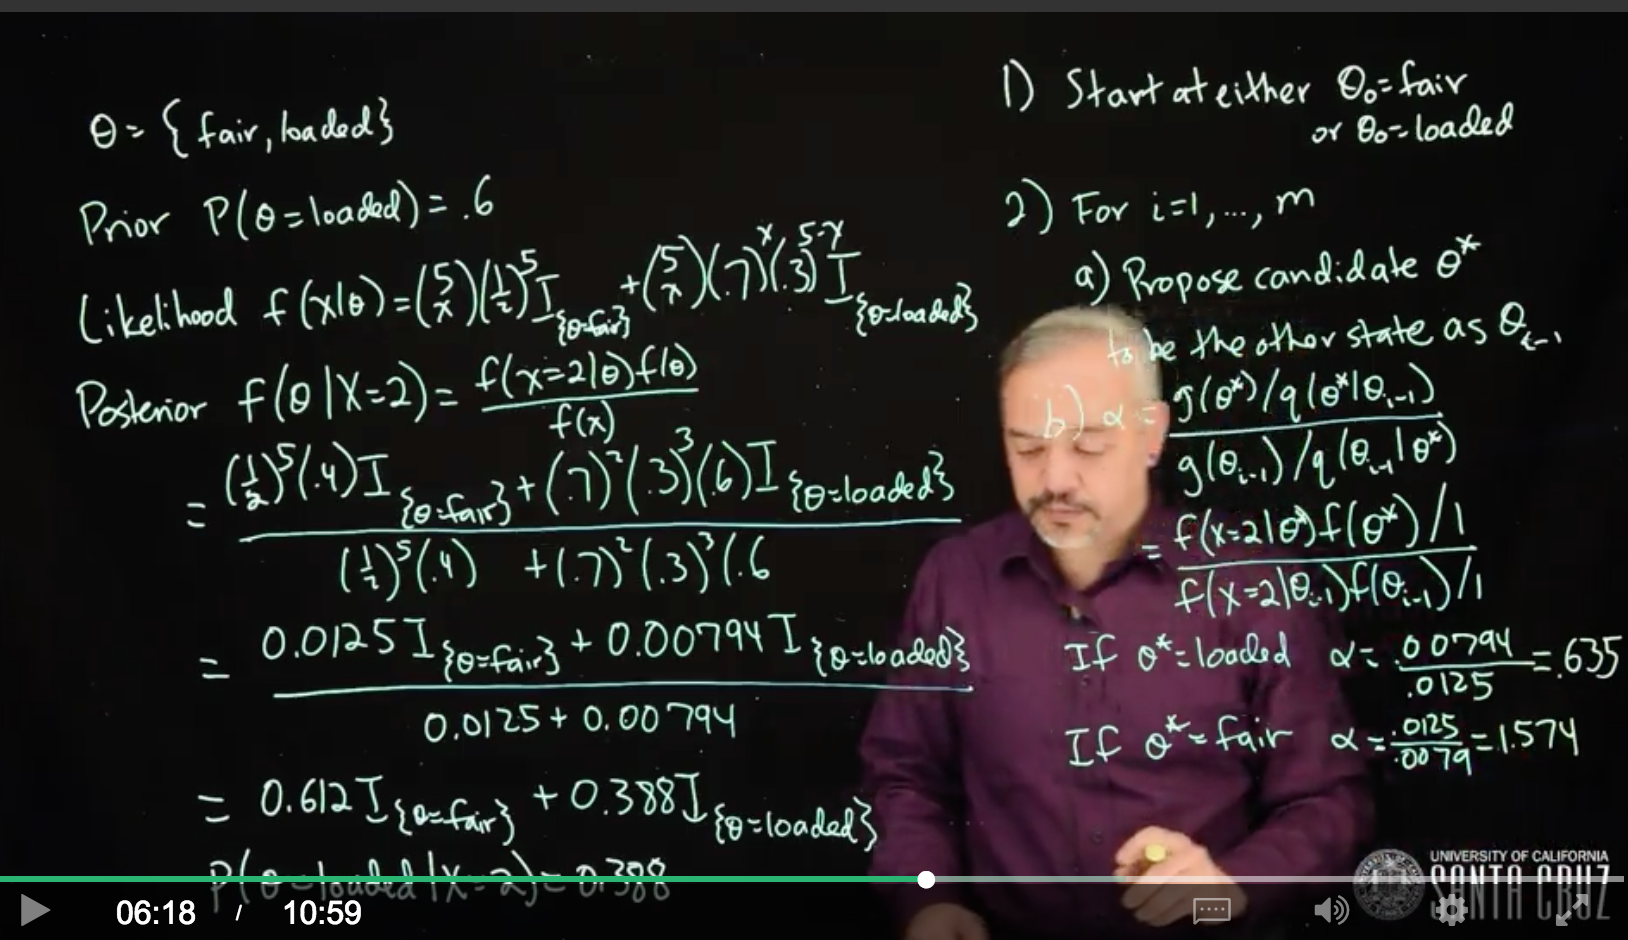 θ = {fair, loaded}
Prior P(θ=loaded) = .6
Likelihood f(x|θ) = (5 x)(1/2)^5 I_{θ=fair} + (5 x)(.7)^x (.3)^{5-x} I_{θ=loaded}
Posterior f(θ|X=2) = f(x=2|θ)f(θ) / f(x)
= (1/2)^5 (.4) I_{θ=fair} + (.7)^2 (.3)^3 (.6) I_{θ=loaded}
(1/2)^5 (.4) + (.7)^2 (.3)^3 (.6
= 0.0125 I_{θ=fair} + 0.00794 I_{θ=loaded}
0.0125 + 0.00794
= 0.612 I_{θ=fair} + 0.388 I_{θ=loaded}
P(θ=loaded|X=2) = 0.388
1) Start at either θ_0=fair
or θ_0=loaded
2) For i=1, ..., m
a) Propose candidate θ*
to be the other state as θ_{i-1}
b) α = g(θ*)/q(θ*|θ_{i-1})
g(θ_{i-1})/q(θ_{i-1}|θ*)
= f(x=2|θ*)f(θ*)/1
f(x=2|θ_{i-1})f(θ_{i-1})/1
If θ*=loaded α = .00794/.0125 = .635
If θ*=fair α = .0125/.0079 = 1.574
UNIVERSITY OF CALIFORNIA
SANTA CRUZ
06:18 / 10:59